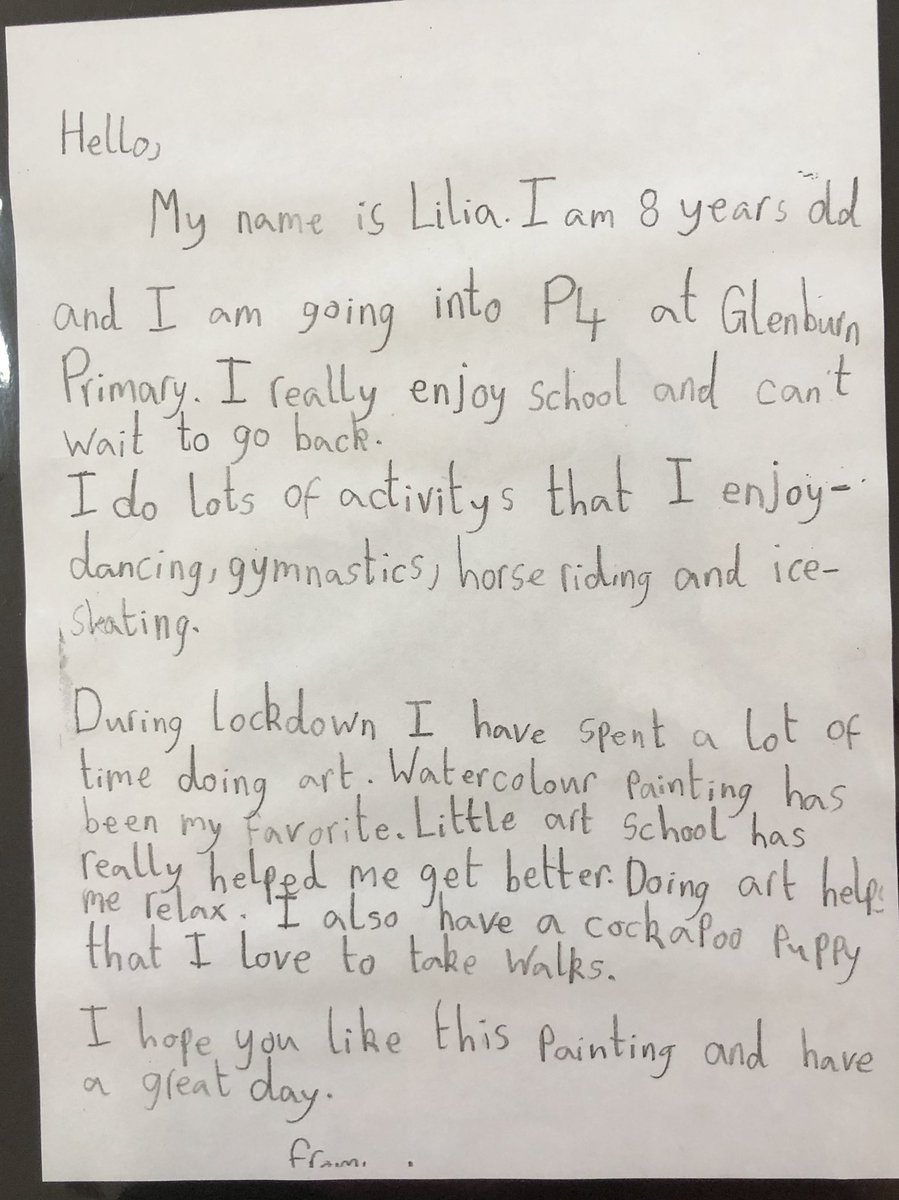 Hello,
My name is Lilia. I am 8 years old
and I am going into P4 at Glenburn
Primary. I really enjoy school and can't
wait to go back.
I do lots of activitys that I enjoy-
dancing, gymnastics, horse riding and ice-
skating.
During lockdown I have spent a lot of
time doing art. Watercolour painting has
been my favorite. Little art school has
really helped me get better. Doing art helps
me relax. I also have a cockapoo puppy
that I love to take walks.
I hope you like this painting and have
a great day.
from